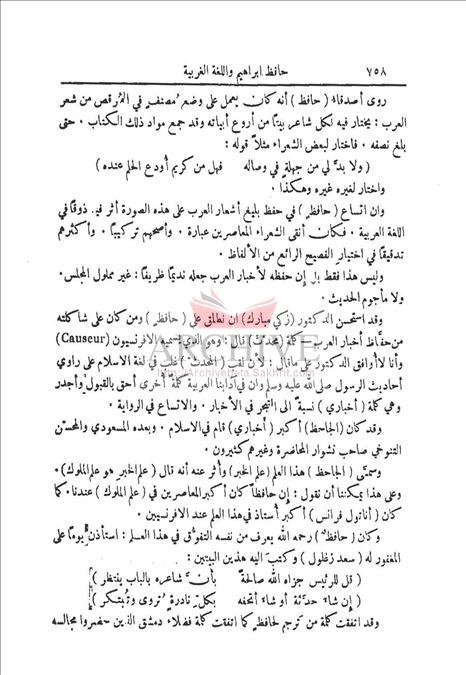 ٧٥٨ حافظ ابراهيم واللغة العربية
روى أصدقاءُ ( حافظ ) أنه كان يعمل على وضع مُصنف في المُرقص من شعر
العرب : يختار فيه لكل شاعر بيتًا من أروع أبياته وقد جمع مواد ذلك الكتاب . حتى
بلغ نصفه . فاختار لبعض الشعراء مثلاً قوله :
( ولا بدَّ لي من جهلة في وصاله فهل من كريم أودع الحلم عنده )
واختار لغيره غيره وهكذا .
وان اتساع ( حافظ ) في حفظ بليغ أشعار العرب على هذه الصورة أثر فيه ذوقًا في
اللغة العربية . فكان أنقى الشعراء المعاصرين عبارة . وأصحهم تركيبًا . وأكثرهم
تدقيقًا في اختيار الفصيح الرائع من الألفاظ .
وليس هذا فقط بل إن حفظه لأخبار العرب جعله نديمًا ظريفًا : غير مملول المجلس .
ولا مأجوم الحديث .
وقد استحسن الدكتور ( زكي مبارك ) ان نطلق على ( حافظ ) ومن كان على شاكلته
من حفَّاظ أخبار العرب – كلمة ( محدث ) قال : وهو الذي يسميه الافرنسيون (Causeur)
وأنا لا أوافق الدكتور على ماقال : لأن لقب ( المحدث ) غلب في لغة الاسلام على راوي
أحاديث الرسول صلى الله عليه وسلم وان في آدابنا العربية كلمة أخرى أحق بالقبول وأجدر
وهي كلمة ( أخباري ) نسبة الى التبحر في الأخبار . والاتساع في الرواية .
ARCHIVE
http://Archivebeta.Sakhrit.com
وقد كان ( الجاحظ ) أكبر ( أخباري ) قام في الاسلام . وبعده المسعودي والمحسّن
التنوخي صاحب نشوار المحاضرة وغيرهم كثيرون .
وسمَّى ( الجاحظ ) هذا العلم ( علم الخبر ) وأُثر عنه أنه قال ( علم الخبر هو علم الملوك ) .
وعلى هذا يمكننا أن نقول : إن حافظاً كان أكبر المعاصرين في ( علم الملوك ) عندنا . كما
كان ( أناتول فرانس ) أكبر أستاذ في هذا العلم عند الافرنسيين .
وكان ( حافظ ) رحمه الله يعرف من نفسه التفوق في هذا العلم : استأذن يومًا على
المغفور له ( سعد زغلول ) وكتب اليه هذين البيتين :
( قل للرئيس جزاه الله صالحةً بأن شاعره بالباب ينتظر )
( إن شاء حدَّثه أو شاء أتحفه بكل نادرة تُروى وتُبتكر )
وقد اتفقت كلمة من ترجم لحافظ كما اتفقت كلمة فضلاء دمشق الذين حضروا مجالسه